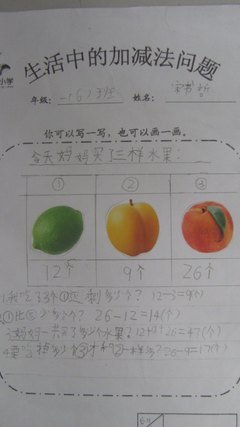 小学
生活中的加减法问题
年级：一(6)班 姓名：宋书哲
你可以写一写，也可以画一画。
今天妈妈买了三样水果：
① ② ③
12个 9个 26个
1.我吃了3个①还剩多少个？12-3=9(个)
①比③少多少个？26-12=14(个)
妈妈一共买了多少个水果？12+9+26=47(个)
4要吃掉多少个③才和②一样多？26-9=17(个)